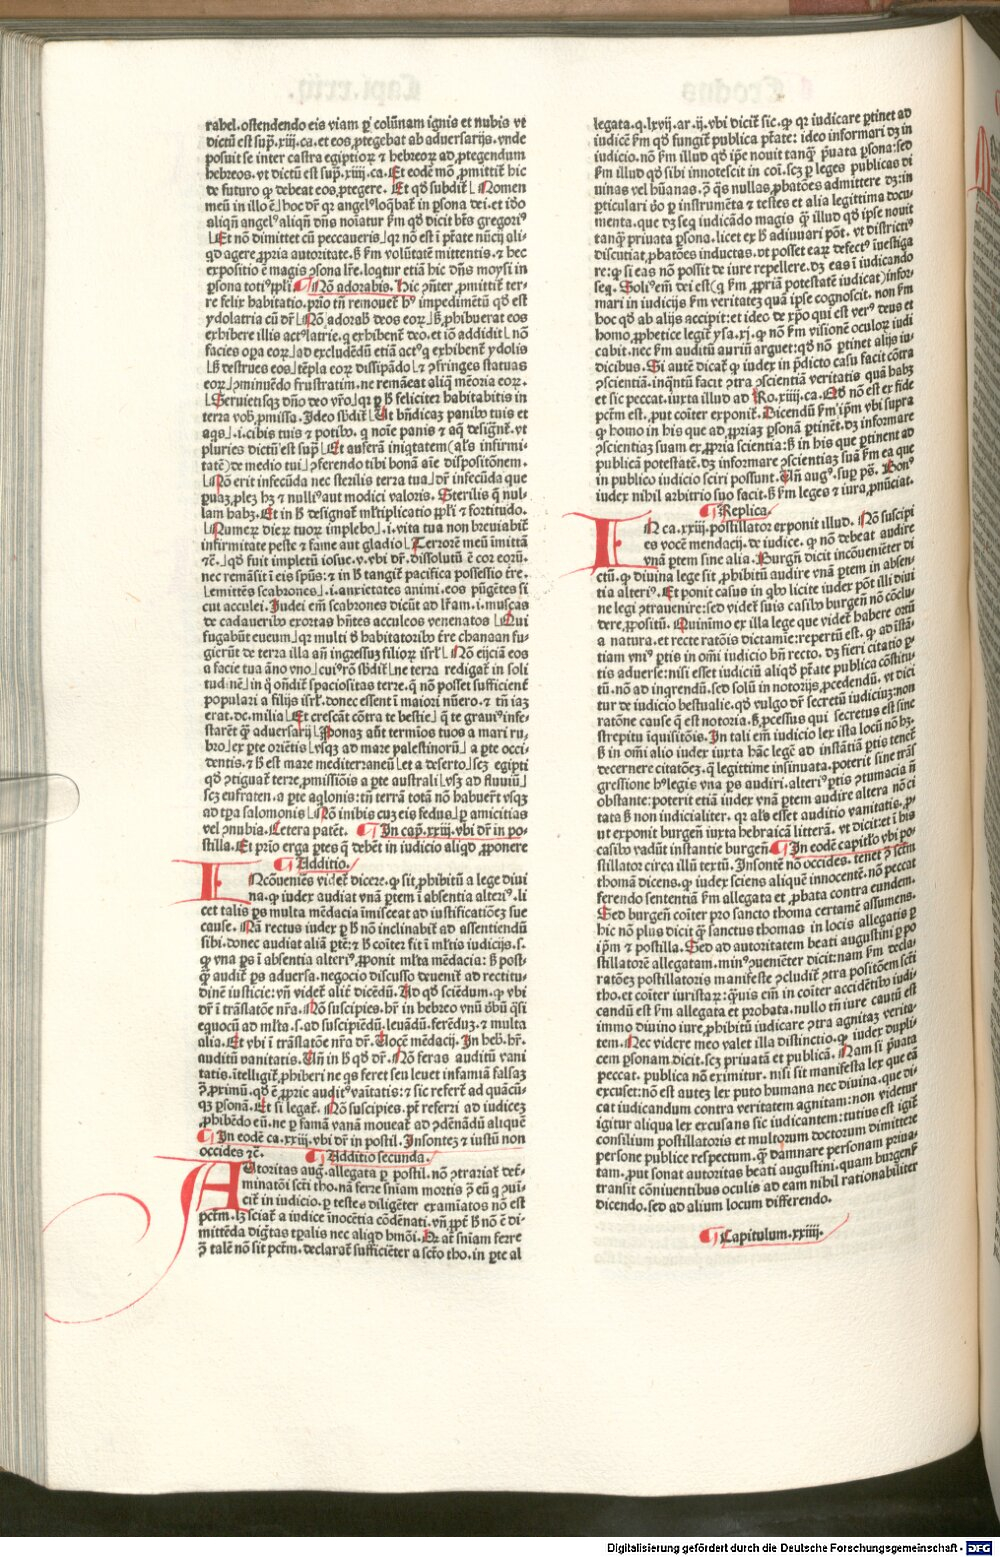 rabel. ostendendo eis viam ꝑ colũnam ignis et nubis vt
dictũ est supͣ. xiij. ca. et eos ꝓtegebat ab aduersarijs. vnde
posuit se inter castra egiptioꝝ ⁊ hebreoꝝ ad ꝓtegendum
hebreos. vt dictũ est supͣ. xiiij. ca. Et eodẽ mõ ꝓmittit̃ hic
de futuro ꝙ debeat eos ꝓtegere. Et qd̃ subdit̃ Nomen
expositio ẽ magis ꝯsona lr̃e. loqtur etiã hic dñs moysi in
ꝑsona toti⁹ ppl̃i. Nõ adorabis. Hic ꝯñter ꝓmittit̃ ter-
re felix habitatio. prio tñ remouet̃ h⁹ impedimẽtũ qd̃ est
ydolatria cũ dr̃ Nõ adorab̃ deos eoꝝ. s̃ ꝓhibuerat eos
facies oꝑa eoꝝ ad excludẽdũ etiã act⁹ q̃ exhibent̃ ydolis
s̃ destrues eos tẽpla eoꝝ dissipãdo ⁊ ꝯfringes statuas
eoꝝ ꝯminuẽdo frustratim. ne remãeat aliq̃ mẽoria eoꝝ.
Seruietisqꝫ dño deo vr̃o qꝛ ꝑ ħ feliciter habitabitis in
terra vob̃ ꝓmissa. Ideo sb̃dit̃ Ut bñdicaꝫ panibꝰ tuis et
aqs .i. cibis tuis ⁊ potibꝰ. q̃ noĩe panis ⁊ aq̃ designãt̃. vt
pluries dictũ est supͣ Et auferã iniqtatem (al̃s infirmi-
tatẽ) de medio tui ꝯferendo tibi bonã aĩe dispositõnem.
Nõ erit infecũda nec sterilis terra tua dr̃ infecũda que
lam habꝫ. Et in ħ designat̃ mĩtiplicatio ppl̃i ⁊ fortitudo.
Numeꝝ dieꝝ tuoꝝ implebo .i. vita tua non breuiabit̃
infirmitate peste ⁊ fame aut gladio Terrorẽ meũ imittã
⁊c̃. qd̃ fuit impletũ iosue. v. vbi dr̃. dissolutũ ẽ cor eorũ.
nec remãsit ĩ eis spũs: ⁊ in ħ tangit̃ pacifica possessio tr̃e.
emittẽs scabrones .i. anxietates animi. eos pũgẽtes si
cut acculei. Iudei em̃ scabrones dicũt ad lr̃am .i. muscas
de cadaueribꝰ exortas hñtes acculeos venenatos Qui
fugabũt eueum qꝛ multi d̃ habitatoribꝰ tr̃e chanaan fu-
gierũt de terra illa añ ingressuꝫ filioꝝ isrl̃ Nõ eijciã eos
a facie tua ãno vno cui⁹ rõ sb̃dit̃ ne terra redigat̃ in soli
tudinẽ in q̃ oñdit̃ spaciositas terre. q̃ nõ posset sufficient̃
populari a filijs isrl̃. donec essent ĩ maiori nũero. ⁊ tñ iaꝫ
erat. dc. milia Et crescãt cõtra te bestie q̃ te graui⁹ infe-
starẽt q̃ͣ aduersarij Ponaꝫ aũt termĩos tuos a mari ru-
bro ex pte oriẽtis vsqꝫ ad mare palestinorũ a pte occi-
dentis. ⁊ ħ est mare mediterraneũ et a deserto scꝫ egipti
qd̃ ꝯtiguat̃ terre ꝓmissiõis a pte australi vsqꝫ ad fluuiũ
scꝫ eufraten. a pte aqlonis: tñ terrã totã nõ habuer̃t vsqꝫ
ad tꝑa salomonis Nõ inibis cuꝫ eis fedus ꝑ amicitias
vel ꝯnubia. Cetera patẽt. In cap̃. xxiij. vbi dr̃ in po-
stilla. Et prio erga ptes q̃ debẽt in iudicio aliqd̃ ꝓponere
Additio.
INcõueniẽs videt̃ dicere. ꝙ sit ꝓhibitũ a lege diui
na. ꝙ iudex audiat vnã ptem ĩ absentia alteri⁹. li
cet talis ps multa mẽdacia ĩmisceat ad iustificatiões sue
cause. Nã rectus iudex ꝑ ħ nõ inclinabit̃ ad assentiendũ
sibi. donec audiat aliã ptẽ: ⁊ ħ cõiter fit ĩ mĩtis iudicijs. s.
ꝙ vna ps ĩ absentia alteri⁹. ꝓponit mĩta mẽdacia: s̃ post-
q̃ͣ audit̃ ps aduersa. negocio discusso deuenit̃ ad rectitu-
dinẽ iusticie: vñ videt̃ alit̃ dicẽdũ. Ad qd̃ sciẽdum. ꝙ vbi
dr̃ ĩ trãslatõe nr̃a. Nõ suscipies. hr̃ in hebreo vnũ vbũ qsi
equocũ ad mĩta. s. ad suscipiẽdũ. leuãdũ. ferẽduꝫ. ⁊ multa
alia. Et vbi ĩ trãslatõe nr̃a dr̃. Uocẽ mẽdacij. In heb̃. hr̃.
auditũ vanitatis. Uñ in ħ qd̃ dr̃. Nõ feras auditũ vani
tatis. ĩtelligit̃ ꝓhiberi ne qs feret seu leuet infamiã falsaꝫ
ꝯ̃ ꝓximũ. qd̃ ẽ ꝓprie audit⁹ vãitatis: ⁊ sic refert̃ ad quãcũ-
qꝫ ꝑsonã. Et si legat̃. Nõ suscipies. pt̃ referri ad iudiceꝫ
ꝓhibẽdo eũ. ne ꝑ famã vanã moueat̃ ad ꝯdẽnãdũ aliquẽ
In eodẽ ca. xxiij. vbi dr̃ in postil. Insontẽ ⁊ iustũ non
occides ⁊c̃. Additio secunda.
AUtoritas aug̃. allegata ꝑ postil. nõ ꝯtrariat̃ det̃-
minatõi sc̃ti tho. nã ferre sniam mortis ꝯ̃ eũ q̃ ꝯui-
cit̃ in iudicio. ꝑ testes diligẽter examĩatos nõ est
pctm̃. lꝫ sciat̃ a iudice ĩnocẽtia cõdẽnati. vñ ꝓpt̃ ħ nõ ẽ di-
mittẽda dignitas tꝑalis nec aliqd̃ hmõi. Qͣ at̃ sniam ferre
ꝯ̃ talẽ nõ sit pctm̃. declarat̃ sufficiẽter a sc̃to tho. in pte al
legata. q. lxvij. ar. ij. vbi dicit̃ sic. ꝙ qꝛ iudicare ptinet ad
iudicẽ fm̃ qd̃ fungit̃ publica pt̃ate: ideo informari dꝫ in
iudicio. nõ fm̃ illud qd̃ ip̃e nouit tanq̃ͣ puata ꝑsona: sed
fm̃ illud qd̃ sibi innotescit in coĩ. scꝫ ꝑ leges publicas di
uinas vel hũanas. ꝯ̃ q̃s nullas ꝓbatões admittere dꝫ: in
pticulari vo ꝑ instrumẽta ⁊ testes et alia legittima docu-
menta. que dꝫ seq iudicãdo magis q̃ͣ illud qd̃ ipse nouit
tanq̃ͣ priuata ꝑsona. licet ex ħ adiuuari pot̃. vt districti⁹
discutiat ꝓbatões inductas. vt posset earꝫ defect⁹ ĩuestiga
re: ꝙ si eas nõ possit de iure repellere. dꝫ eas ĩ iudicando
seq. Soli⁹ em̃ dei est (q fm̃ ꝓpriã potestatẽ iudicat) infor-
mari in iudicijs fm̃ veritateꝫ quã ipse cognoscit. non fm̃
hoc qd̃ ab alijs accipit: et ideo de xp̃o qui est ver⁹ deus et
homo ꝓphetice legit̃ ysa. xj. ꝙ nõ fm̃ visionẽ oculoꝝ iudi
cabit. nec fm̃ auditũ auriũ arguet: qd̃ nõ ptinet alijs iu-
dicibus. Si autẽ dicat̃ ꝙ iudex in pdicto casu facit cõtra
ꝯscientiã. inq̃ntũ facit ꝯtra ꝯscientiã veritatis quã habꝫ
et sic peccat. iuxta illud ad Ro. xiiij. ca. Qd̃ nõ est ex fide
pctm̃ est. put coiter exponit̃. Dicendũ fm̃ ip̃m vbi supra
ꝙ homo in his que ad ꝓpriaꝫ ꝑsonã ptinẽt. dꝫ informare
ꝯscientiaꝫ suam ex ꝓpria scientia: s̃ in his que ptinent ad
publicã potestatẽ. dꝫ informare ꝯscientiaꝫ suã fm̃ ea que
in publico iudicio sciri possunt. Uñ aug⁹. supͣ ps̃. Bon⁹
iudex nihil arbitrio suo facit. s̃ fm̃ leges ⁊ iura ꝓnũciat.
Replica.
IN ca. xxiij. postillator exponit illud. Nõ suscipi
es vocẽ mendacij. de iudice. ꝙ nõ debeat audire
vnã ptem sine alia. Burgeñ dicit incõueniẽter di
ctũ. ꝙ diuina lege sit ꝓhibitũ audire vnã ptem in absen-
tia alteri⁹. Et ponit casus in qbꝰ licite iudex pot̃ illi diui
ne legi ꝯtrauenire: sed videt̃ suis casibꝰ burgeñ nõ cõclu
dere ꝓpositũ. Quinimo ex illa lege que videt̃ habere ortũ
a natura. et recte ratõis dictamĩe: repertũ est. ꝙ ad istã-
tiam vni⁹ ptis in omĩ iudicio bñ recto. dꝫ fieri citatio p-
tis aduerse: nisi esset iudiciũ aliqd̃ pt̃ate publica cõstitu-
tũ. nõ ad inqrendũ. sed solũ in notorijs ꝓcedendũ. vt dici
tur de iudicio bestualie. qd̃ vulgo dr̃ secretũ iudiciuꝫ: non
ratõne cause q̃ est notoria. s̃ ꝓcessus qui secretus est sine
strepitu ĩquisitõis. In tali em̃ iudicio lex ista locũ nõ hꝫ.
s̃ in omĩ alio iudex iuxta hãc legẽ ad instãtiã ptis tenet̃
decernere citatõeꝫ. q̃ legittime insinuata. poterit sine trãs
gressione h⁹ legis vna ps audiri. alteri⁹ ptis ꝯtumacia ñ
obstante: poterit etiã iudex vnã ptem audire altera nõ ci
tata s̃ non iudicialiter. qꝛ al̃s esset auditio vanitatis. p-
ut exponit burgeñ iuxta hebraicã litterã. vt dicit: et ĩ his
casibꝰ vadũt instantie burgeñ In eodẽ capitlo vbi po-
stillator circa illũ textũ. Insontẽ nõ occides. tenet ꝯ̃ sc̃m
thomã dicens. ꝙ iudex sciens aliquẽ innocentẽ. nõ peccat
ferendo sententiã fm̃ allegata et ꝓbata contra eundem.
Sed burgeñ coiter pro sancto thoma certamẽ assumens.
hic nõ plus dicit q̃ͣ sanctus thomas in locis allegatis ꝑ
ip̃m ⁊ postilla. Sed ad autoritatem beati augustini ꝑ po
stillatorẽ allegatam. min⁹ ꝯueniẽter dicit: nam fm̃ decla-
ratõeꝫ postillatoris manifeste ꝯcludit̃ ꝯtra positõem sc̃ti
tho. et coiter iuristaꝝ: q̃uis em̃ in coiter accidẽtibꝰ iudi
candũ est fm̃ allegata et probata. nullo tñ iure cautũ est
immo diuino iure ꝓhibitũ iudicare ꝯtra agnitaꝫ verita-
tem. Nec videre meo valet illa distinctio. ꝙ iudex dupli-
cem ꝑsonam dicit. scꝫ priuatã et publicã. Nam si puata
peccat. publica nõ eximitur. nisi sit manifesta lex que eã
excuset: nõ est auteꝫ lex puto humana nec diuina. que di-
cat iudicandum contra veritatem agnitam: non videtur
igitur aliqua lex excusans sic iudicantem: tutius est igit̃
consilium postillatoris et multorum doctorum dimittere
persone publice respectum. q̃ͣ damnare personam priua-
tam. put sonat autoritas beati augustini. quam burgeñ
transit cõniuentibus oculis ad eam nihil rationabiliter
dicendo. sed ad alium locum differendo.
Capitulum. xxiiij.
Digitalisierung gefördert durch die Deutsche Forschungsgemeinschaft - DFG